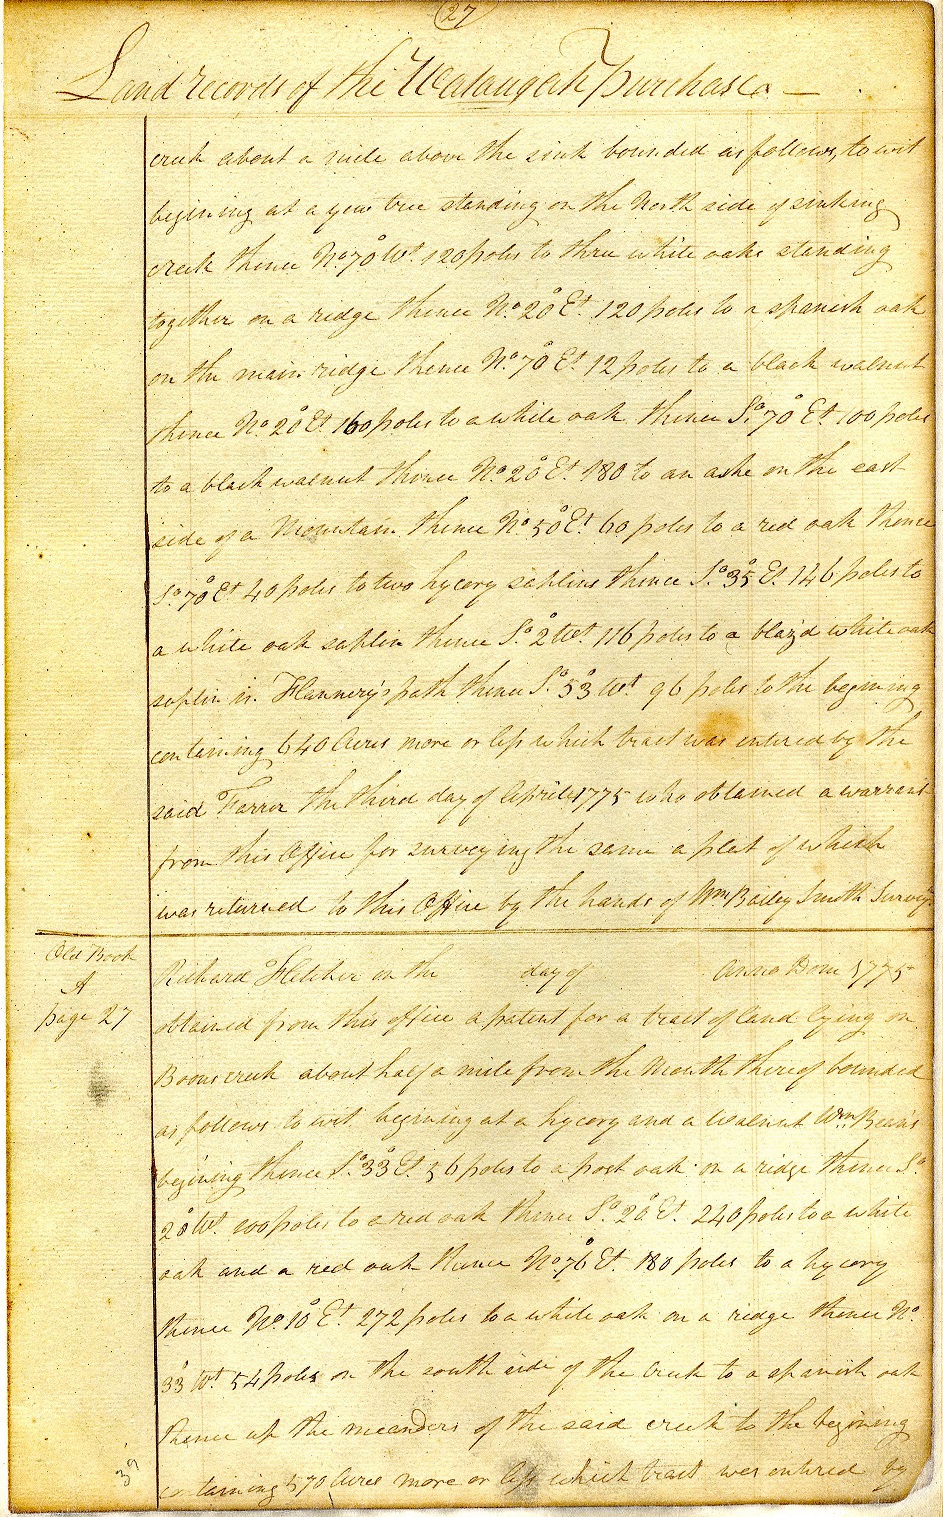 27
Land records of the Wataugah purchase —
creek about a mile above the sink bounded as follows, to wit
begining at a yew tree standing on the North side of sinking
creek thence No. 70° Wt. 120 poles to three white oaks standing
together on a ridge thence No. 20° Et. 120 poles to a spanish oak
on the main ridge thence No. 70° Et. 12 poles to a black walnut
thence No. 20° Et 160 poles to a white oak thence So. 70° Et. 100 poles
to a black walnut thence No. 20° Et. 180 to an ashe on the east
side of a Mountain thence No. 50° Et. 60 poles to a red oak thence
So. 70° Et 40 poles to two hycory saplins thence So. 35° Et. 146 poles to
a white oak saplin thence So. 2° Wt. 116 poles to a blaz'd white oak
saplin in Flannery's path thence So. 53° Wt 96 poles to the begining
containing 640 Acres more or less which tract was entered by the
said Farrer the third day of April 1775 who obtained a warrant
from this Office for surveying the same a plat of which
was returned to this Office by the hands of Wm Bailey Smith Survey.r
Old Book
A
page 27
Richard Fletcher on the day of Anno Dom 1775
obtained from this office a patent for a tract of land lying on
Boons creek about half a mile from the Mouth there of bounded
as follows to wit begining at a hycory and a walnut Wm. Bean's
begining thence So. 33° Et. 36 poles to a post oak on a ridge thence So.
20° Wt. 100 poles to a red oak thence So. 20° Et. 240 poles to a white
oak and a red oak thence No. 76° Et. 180 poles to a hycory
thence No. 10° Et. 272 poles to a white oak on a ridge thence No.
33° Wt 54 poles on the south side of the Creek to a spanish oak
thence up the meanders of the said creek to the begining
containing 570 Acres more or less which tract was entered by
39